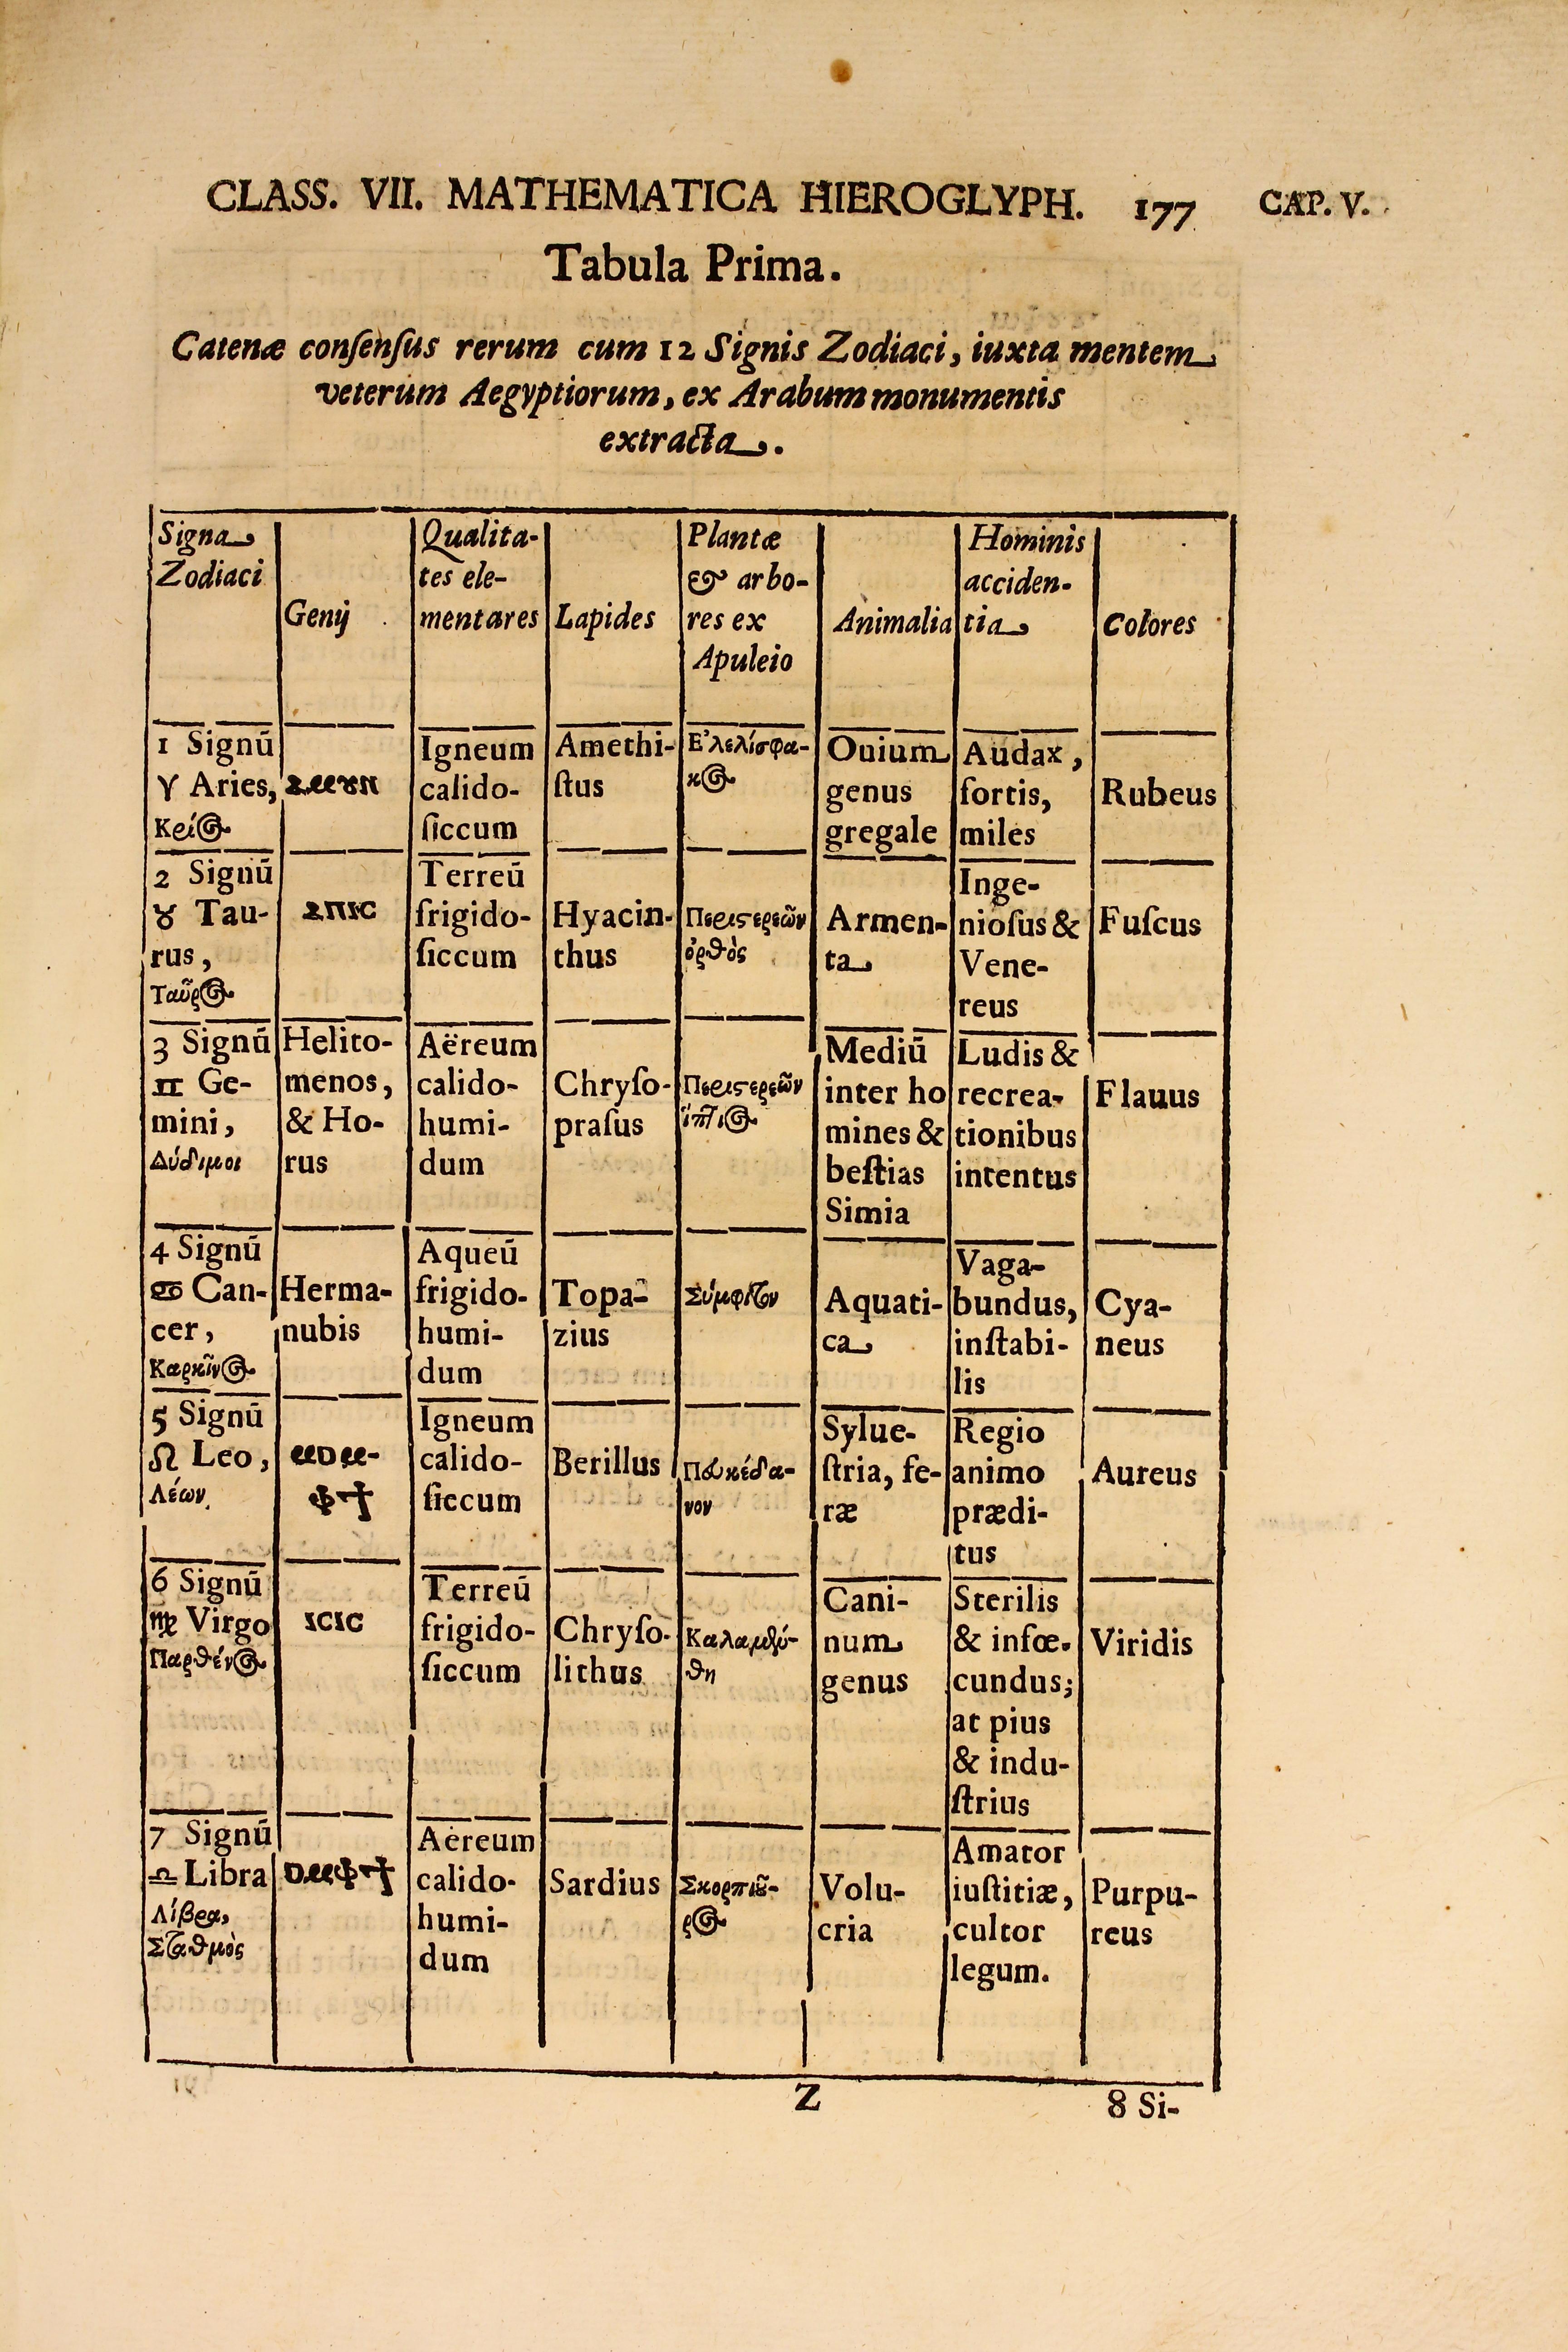 CLASS. VII. MATHEMATICA HIEROGLYPH. 177 CAP. V.
Tabula Prima.
Catenæ conſenſus rerum cum 12 Signis Zodiaci, iuxta mentem
veterum Aegyptiorum, ex Arabum monumentis
extracta.
Signa
Zodiaci
Genij
Qualita-
tes ele-
mentares
Lapides
Plantæ
& arbo-
res ex
Apuleio
Animalia
Hominis
acciden-
tia
Colores
1 Signū
♈ Aries,
Κείος
ⲀⲙⲟⲩⲚ
Igneum
calido-
ſiccum
Amethi-
ſtus
Ἐλελίσφα-
κος
Ouium
genus
gregale
Audax,
fortis,
miles
Rubeus
2 Signū
♉ Tau-
rus,
Ταῦρος
ⲀⲠⲒⲤ
Terreū
frigido-
ſiccum
Hyacin-
thus
Περιστερεῶν
ὀρθὸς
Armen-
ta
Inge-
nioſus &
Vene-
reus
Fuſcus
3 Signū
♊ Ge-
mini,
Δύδιμοι
Helito-
menos,
& Ho-
rus
Aëreum
calido-
humi-
dum
Chryſo-
praſus
Περιστερεῶν
ὕπτιος
Mediū
inter ho
mines &
beſtias
Simia
Ludis &
recrea-
tionibus
intentus
Flauus
4 Signū
♋ Can-
cer,
Καρκῖνος
Herma-
nubis
Aqueū
frigido-
humi-
dum
Topa-
zius
Σύμφιτον
Aquati-
ca
Vaga-
bundus,
inſtabi-
lis
Cya-
neus
5 Signū
♌ Leo,
Λέων
ⲙⲟⲙ-
ⲫϯ
Igneum
calido-
ſiccum
Berillus
Πευκέδα-
νον
Sylue-
ſtria, fe-
ræ
Regio
animo
prædi-
tus
Aureus
6 Signū
♍ Virgo
Παρθένος
ⲒⲤⲒⲤ
Terreū
frigido-
ſiccum
Chryſo-
lithus
Καλαμίν-
θη
Cani-
num
genus
Sterilis
& infœ-
cundus;
at pius
& indu-
ſtrius
Viridis
7 Signū
♎ Libra
Λίβρα,
Σταθμὸς
ⲟⲙⲫϯ
Aereum
calido-
humi-
dum
Sardius
Σκορπιοῦ-
ρος
Volu-
cria
Amator
iuſtitiæ,
cultor
legum.
Purpu-
reus
Z
8 Si-